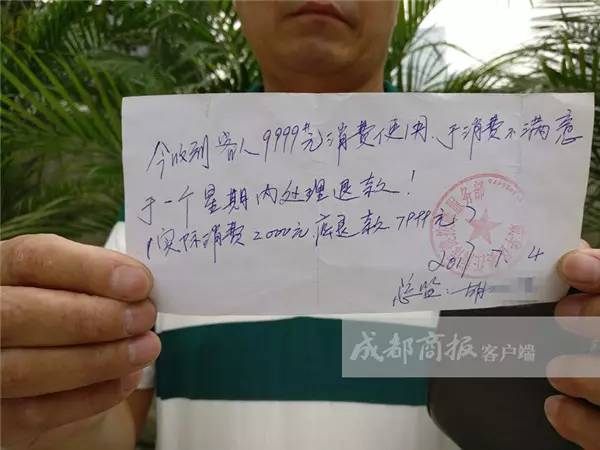 今收到客人9999元消费使用、于消费不满意
于一个星期内处理退款！
(实际消费2000元.应退款7999元)
服务部
2017.7.4
总监:胡
成都商报客户端